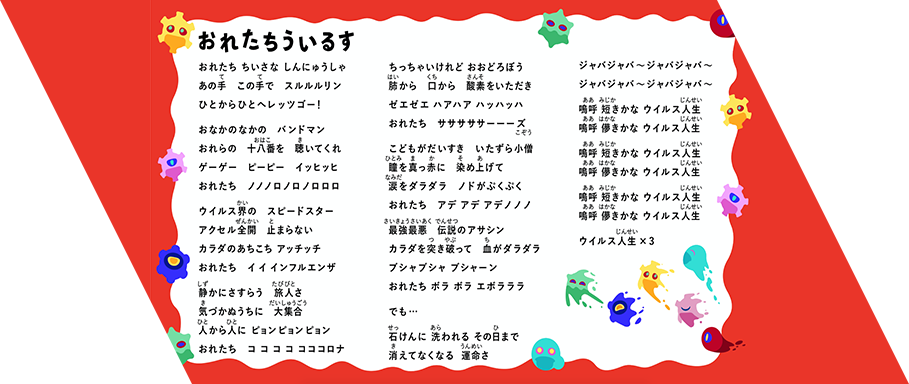 おれたちういるす
おれたち ちいさな しんにゅうしゃ
あの手 この手で スルルルリン
ひとからひとへレッツゴー!
おなかのなかの バンドマン
おれらの 十八番を 聴いてくれ
ゲーゲー ピーピー イッヒッヒ
おれたち ノノノロノロノロロロ
ウイルス界の スピードスター
アクセル全開 止まらない
カラダのあちこち アッチッチ
おれたち イイインフルエンザ
静かにさすらう 旅人さ
気づかぬうちに 大集合
人から人に ピョンピョンピョン
おれたち コココココココロナ
ちっちゃいけれど おおどろぼう
肺から 口から 酸素をいただき
ゼエゼエ ハアハア ハッハッハ
おれたち ササササササーーーズ
こどもがだいすき いたずら小僧
瞳を真っ赤に 染め上げて
涙をダラダラ ノドがぷくぷく
おれたち アデ アデ アデノノノ
最強最悪 伝説のアサシン
カラダを突き破って 血がダラダラ
プシャプシャ プシャーン
おれたち ボラ ボラ エボラララ
でも…
石けんに 洗われる その日まで
消えてなくなる 運命さ
ジャバジャバ〜ジャバジャバ〜
ジャバジャバ〜ジャバジャバ〜
嗚呼 短きかな ウイルス人生
嗚呼 儚きかな ウイルス人生
嗚呼 短きかな ウイルス人生
嗚呼 儚きかな ウイルス人生
嗚呼 短きかな ウイルス人生
嗚呼 儚きかな ウイルス人生
ウイルス人生×3